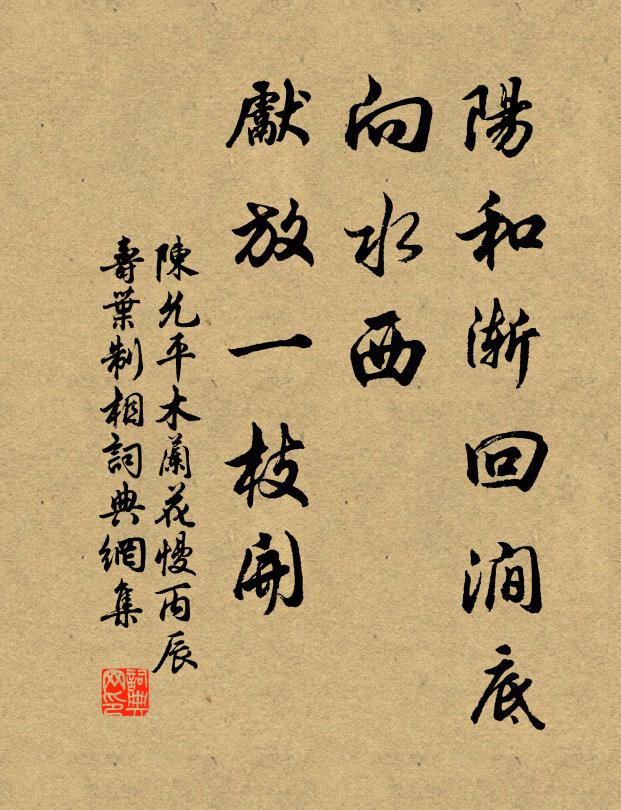 陽和漸回澗底
向水西
獻放一枝開
陳允平木蘭花慢丙辰
壽葉制相詞典網集
詞典网印